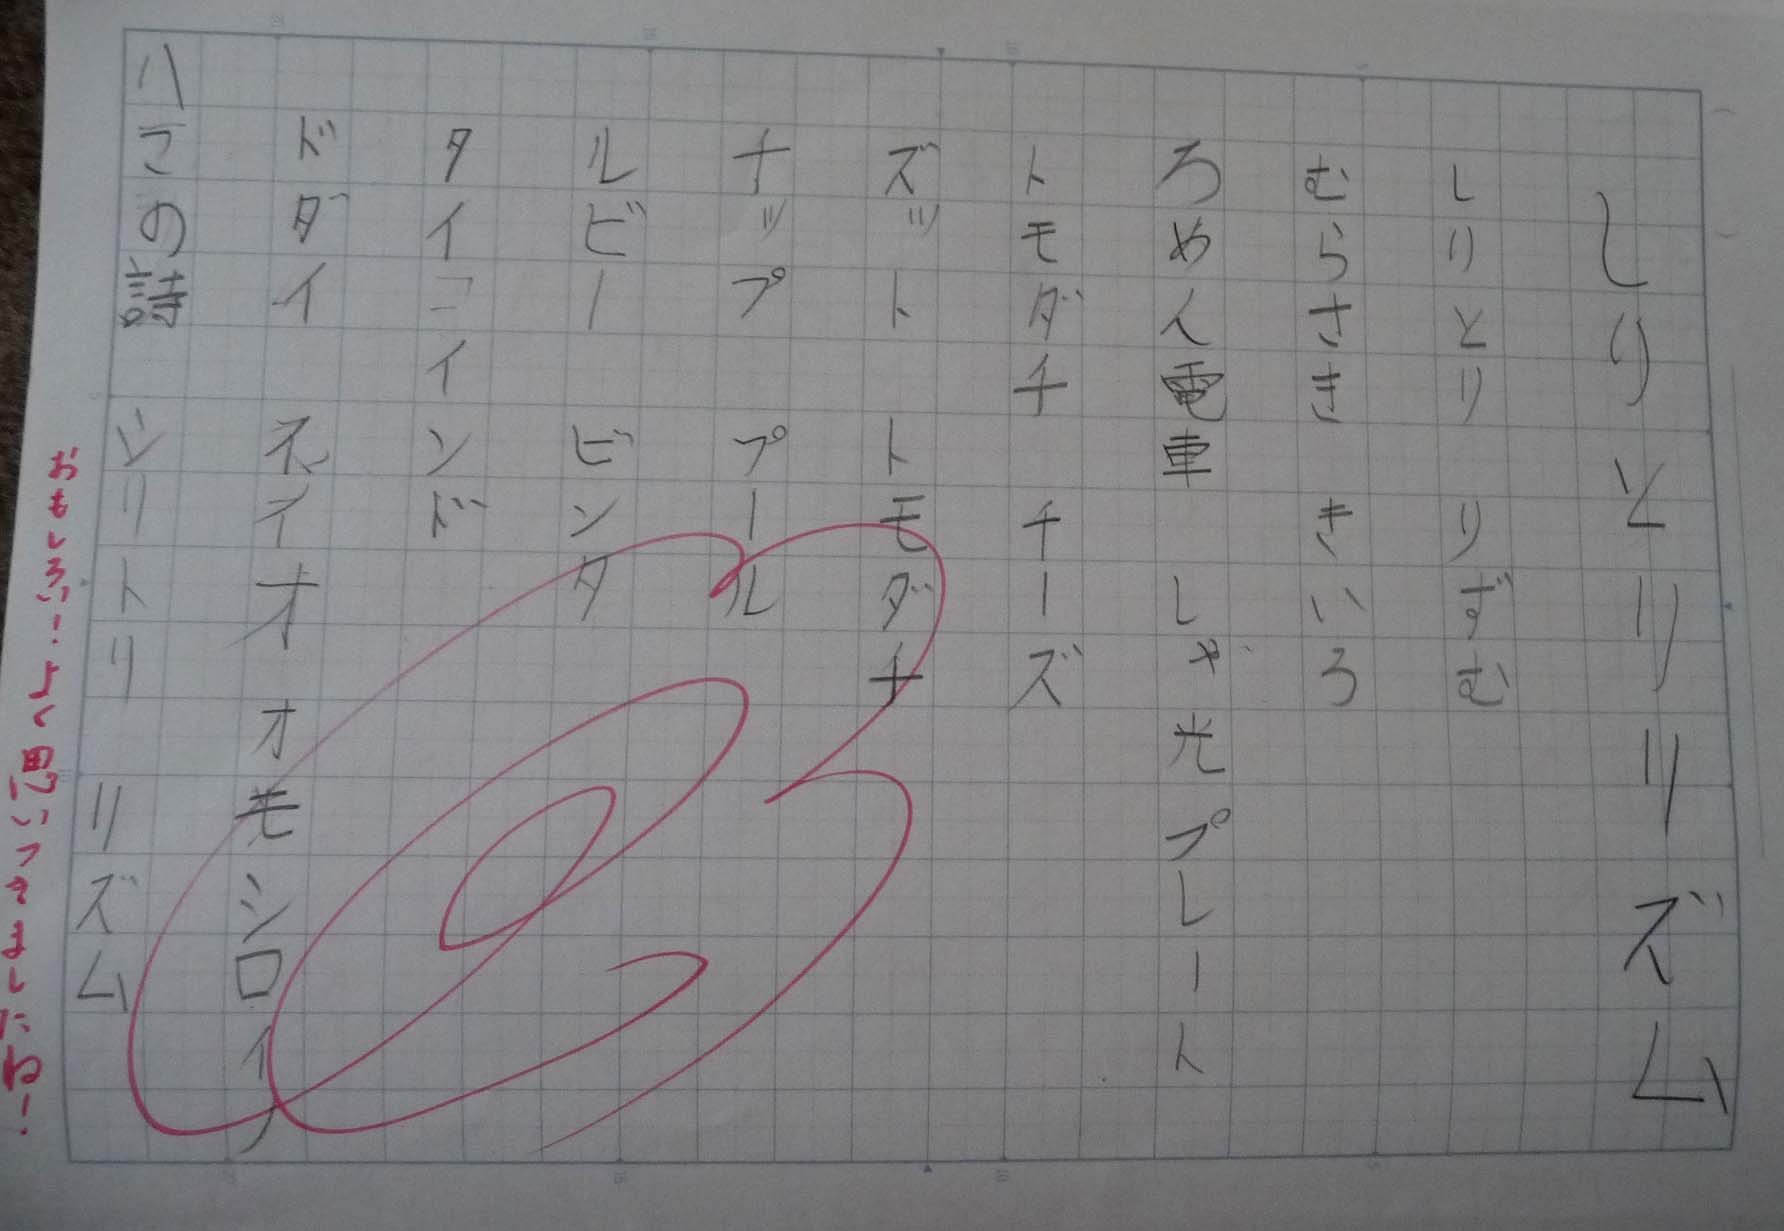 しりとリリズム
しりとり りずむ
むらさき きいろ
ろめん電車 しゃ光プレート
トモダチ チーズ
ズット トモダチ
ナップ プール
ルビー ビンタ
タイ インド
ドダイ オモシロイ
ハこの詩 シリトリ リズム
おもしろい！よく思いつきましたね！